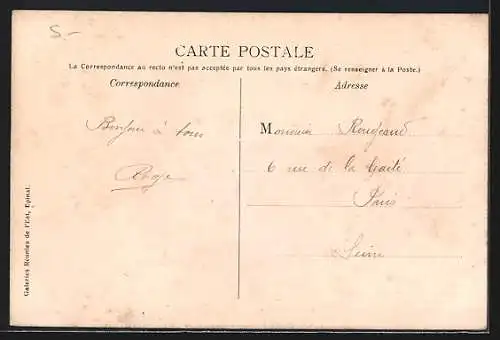 5-
CARTE POSTALE
La Correspondance au recto n'est pas acceptée par tous les pays étrangers. (Se renseigner à la Poste.)
Correspondance
Adresse
Bonjour à tous
Monsieur Rougeaud
6 rue de la Gaité
Paris
Seine
Galeries Réunies de l'Est, Epinal.